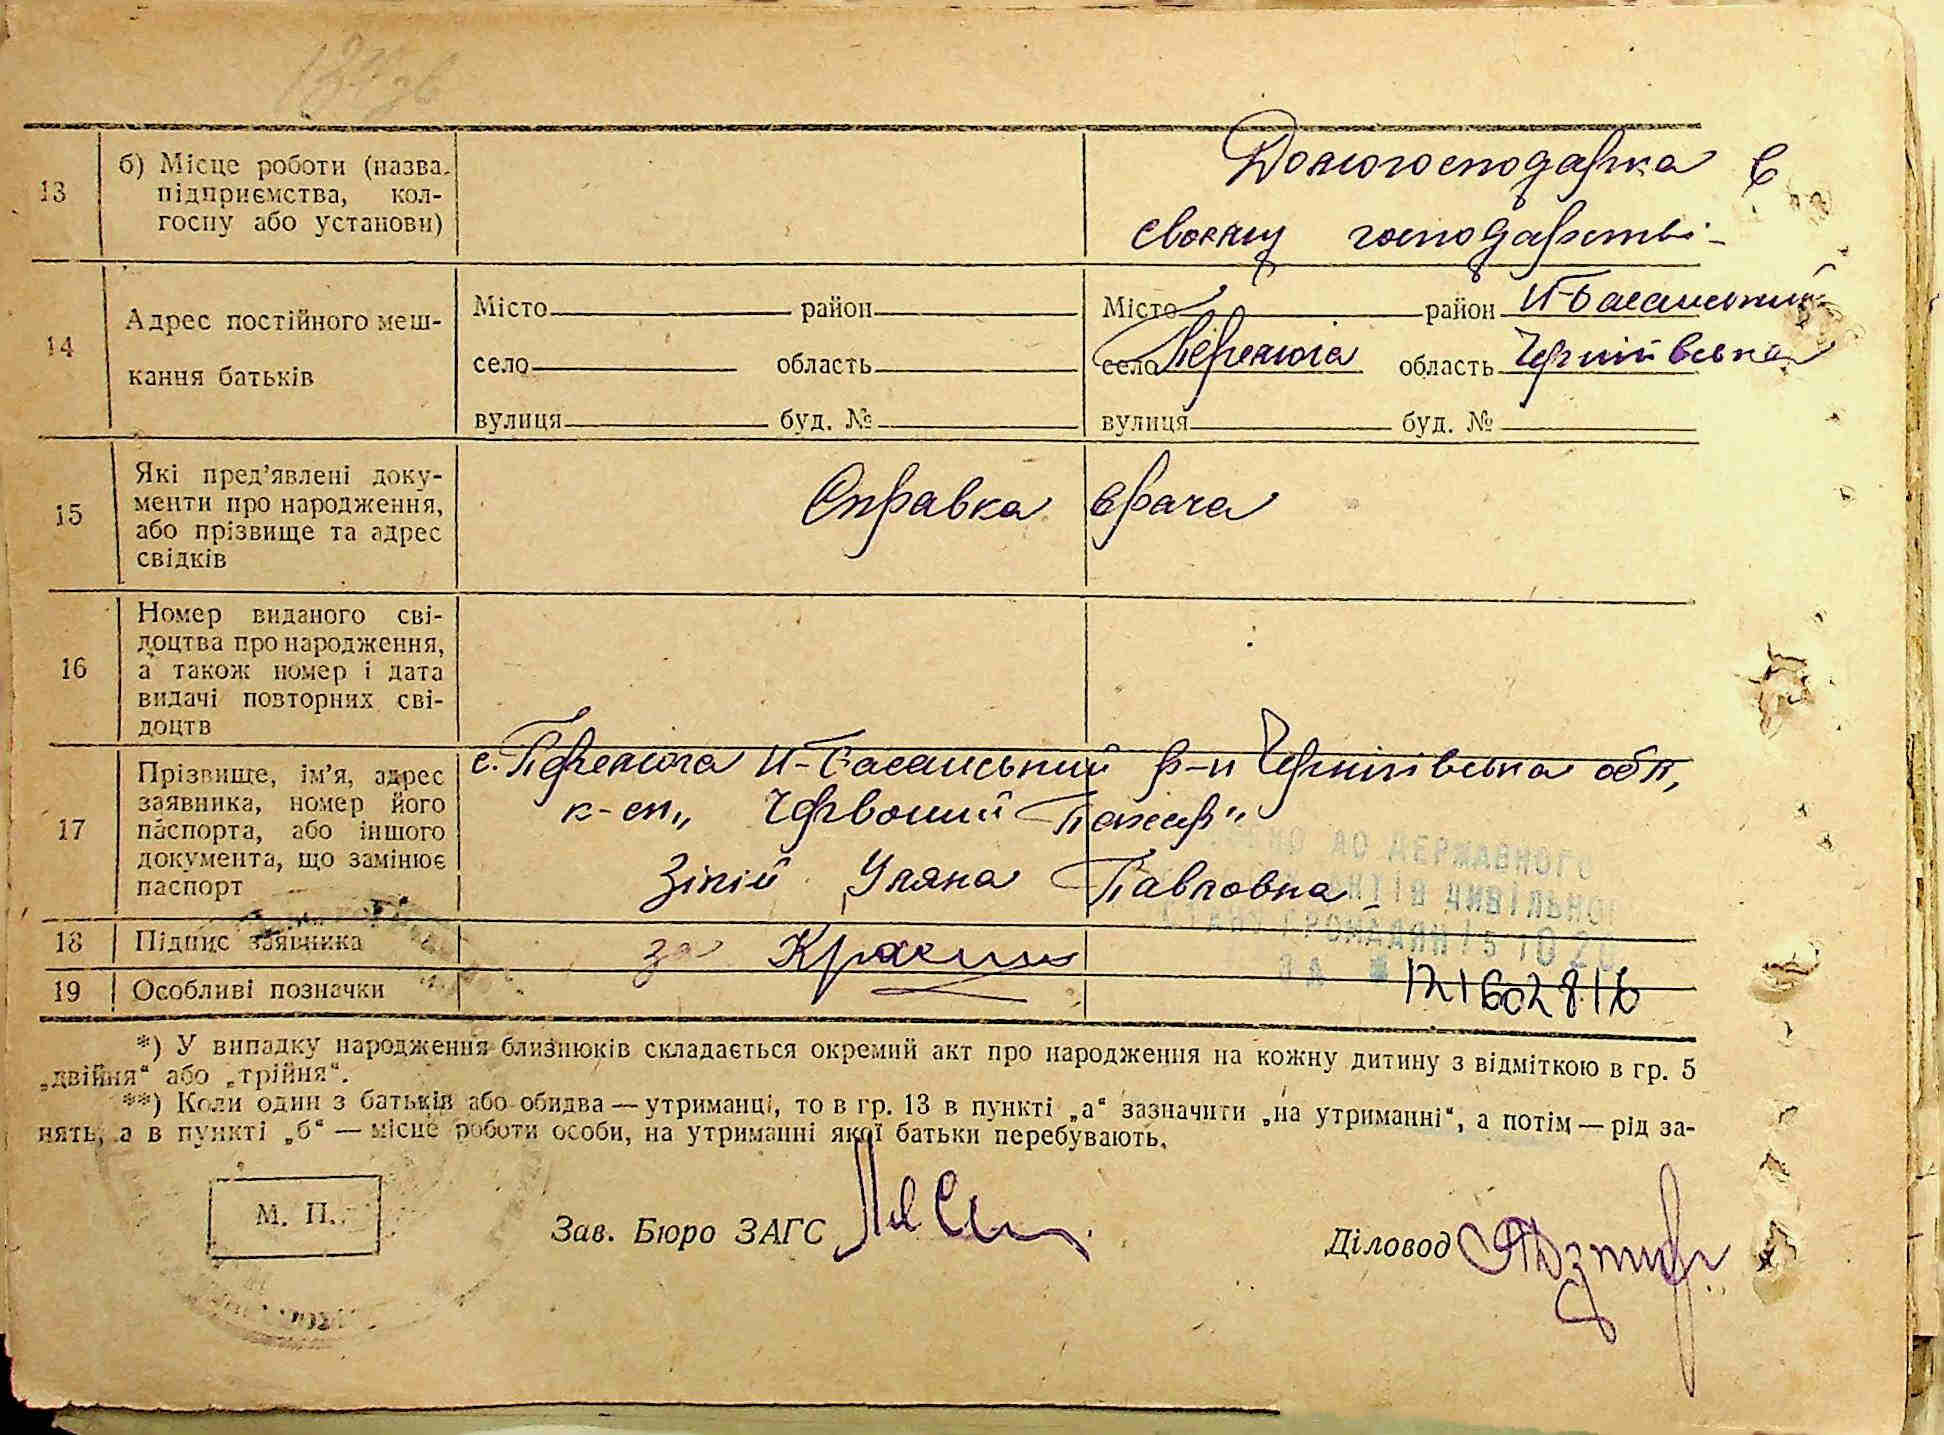 13
б) Місце роботи (назва
підприємства, кол-
госпу або установи)
Домогосподарка в
своєму господарстві
14
Адрес постійного меш-
кання батьків
Місто район
село область
вулиця буд. №
Місто район Н-Басанський
село Перемога область Чернігівська
вулиця буд. №
15
Які пред'явлені доку-
менти про народження,
або прізвище та адрес
свідків
Справка врача
16
Номер виданого сві-
доцтва про народження,
а також номер і дата
видачі повторних сві-
доцтв
17
Прізвище, ім'я, адрес
заявника, номер його
паспорта, або іншого
документа, що замінює
паспорт
с. Перемога Н-Басанський р-н Чернігівська обл,
к-сп „Червоний Пахар"
Зілій Уляна Павловна
ДО ДЕРЖАВНОГО
АКТІВ ЦИВІЛЬНОГО
СТАНУ ГРОМАДЯН
ЗА №
18 Підпис заявника за
19 Особливі позначки
*) У випадку народження близнюків складається окремий акт про народження на кожну дитину з відміткою в гр. 5
„двійня“ або „трійня“.
**) Коли один з батьків або обидва — утриманці, то в гр. 13 в пункті „а“ зазначити „на утриманні“, а потім — рід за-
нять, а в пункті „б“ — місце роботи особи, на утриманні якої батьки перебувають.
М. П.
Зав. Бюро ЗАГС
Діловод